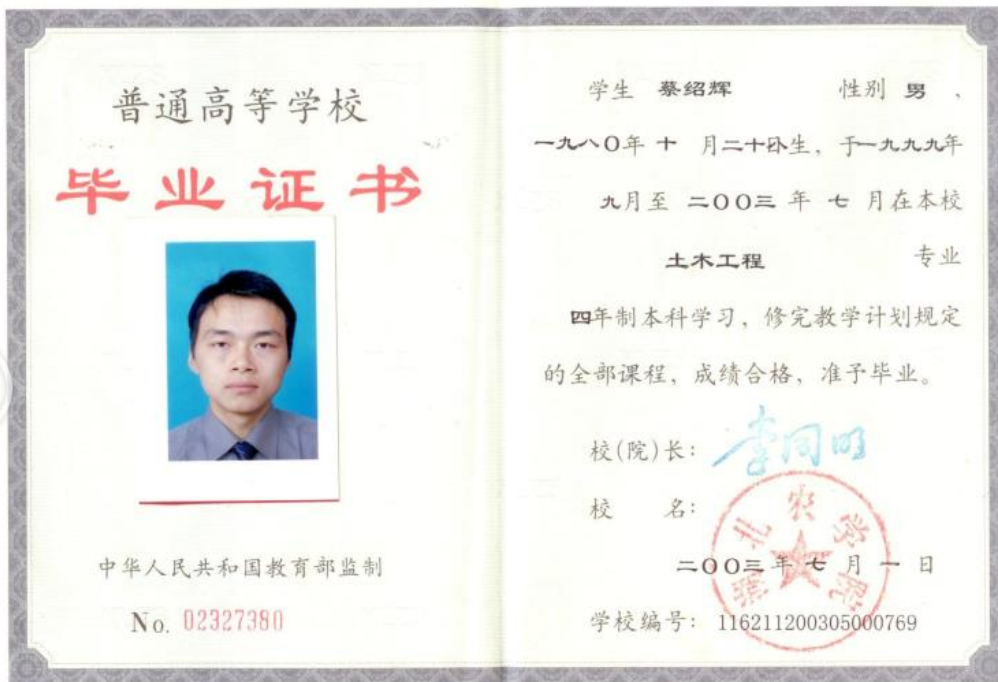 普通高等学校
毕业证书
中华人民共和国教育部监制
No. 02327380
学生 蔡绍辉 性别 男 ，
一九八〇年 十 月二十 日生，于一九九九年
九月至 二〇〇三 年 七 月在本校
土木工程 专业
四年制本科学习，修完教学计划规定
的全部课程，成绩合格，准予毕业。
校(院)长： 李同明
校 名：
北农学院
二〇〇三 年 七 月 一 日
学校编号： 116211200305000769